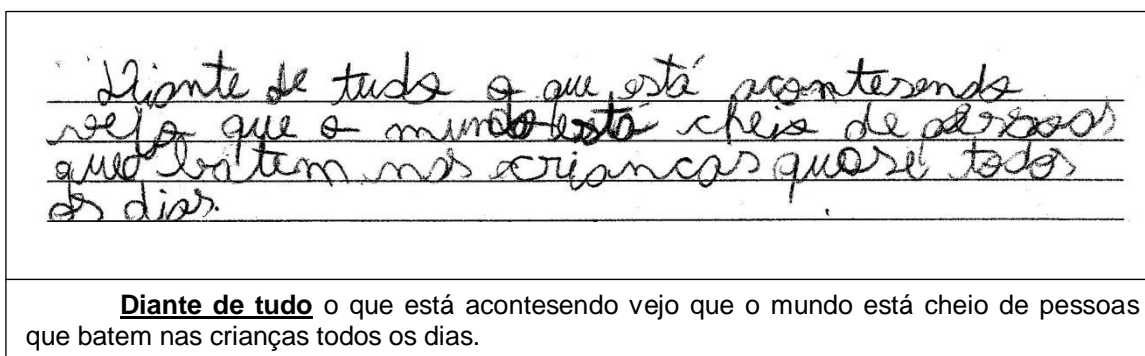 Diante de tudo o que está acontesendo
vejo que o mundo está cheio de pessoas
que batem nas criancas quase todos
os dias.
Diante de tudo o que está acontesendo vejo que o mundo está cheio de pessoas
que batem nas crianças todos os dias.